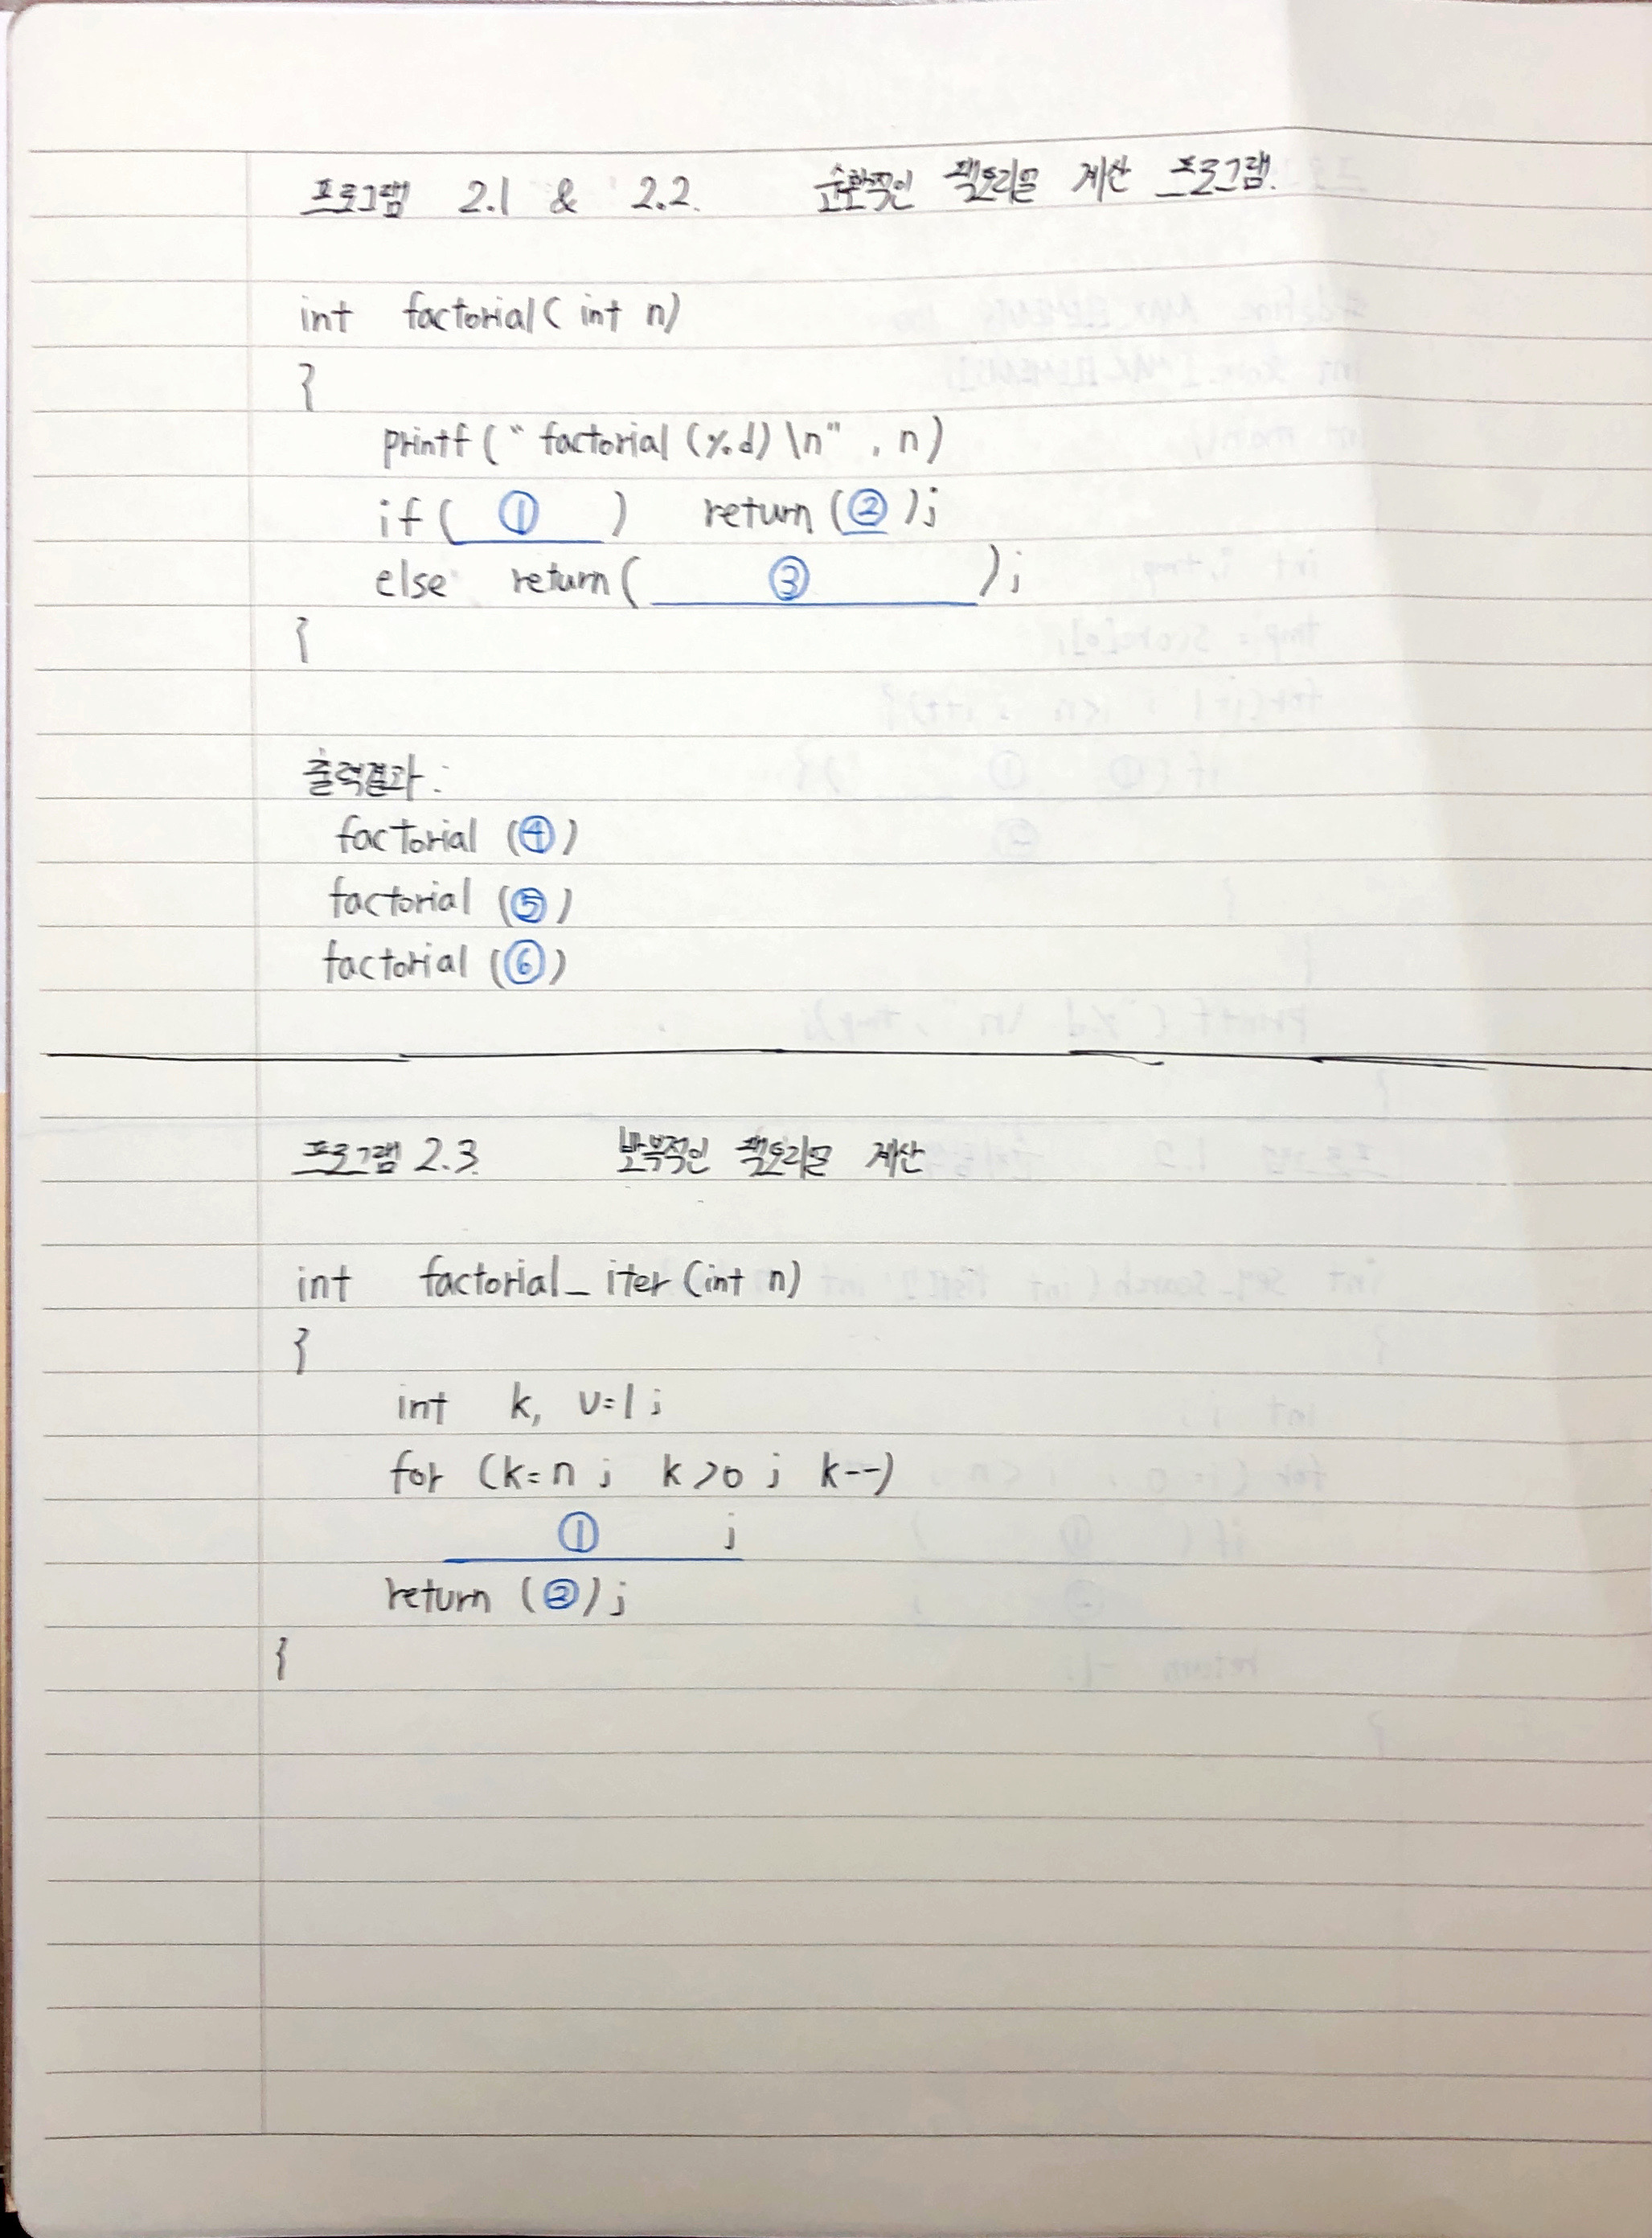 프로그램 2.1 & 2.2. 순환적인 팩토리얼 계산 프로그램.
int factorial( int n)
{
printf ( " factorial (%d) \n" , n)
if( ① ) return (②);
else return( ③ );
}
출력결과 :
factorial (④)
factorial (⑤)
factorial (⑥)
프로그램 2.3. 반복적인 팩토리얼 계산
int factorial_iter (int n)
{
int k, v=1;
for (k=n ; k>0 ; k--)
① ;
return (②);
}